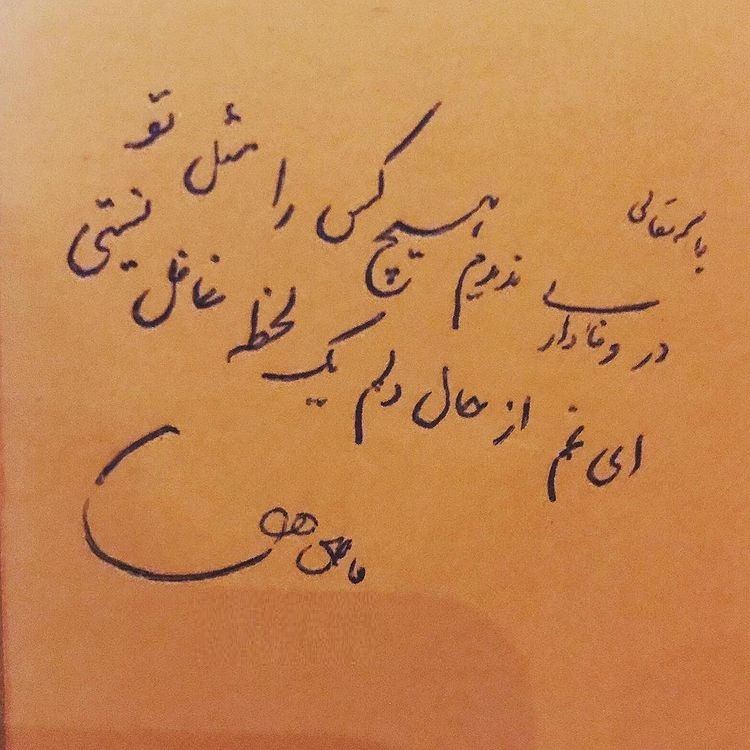 در وفاداری ندیدم هیچ کس را مثل تو
ای غم از حال دلم یک لحظه غافل نیستی